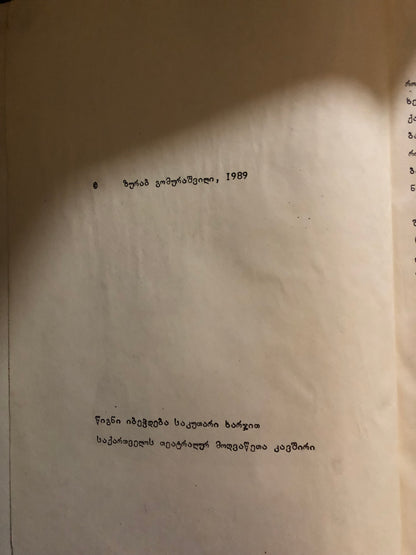 © ზურაბ გომურაშვილი, 1989
წიგნი იბეჭდება საკუთარი ხარჯით
საქართველოს თეატრალურ მოღვაწეთა კავშირი